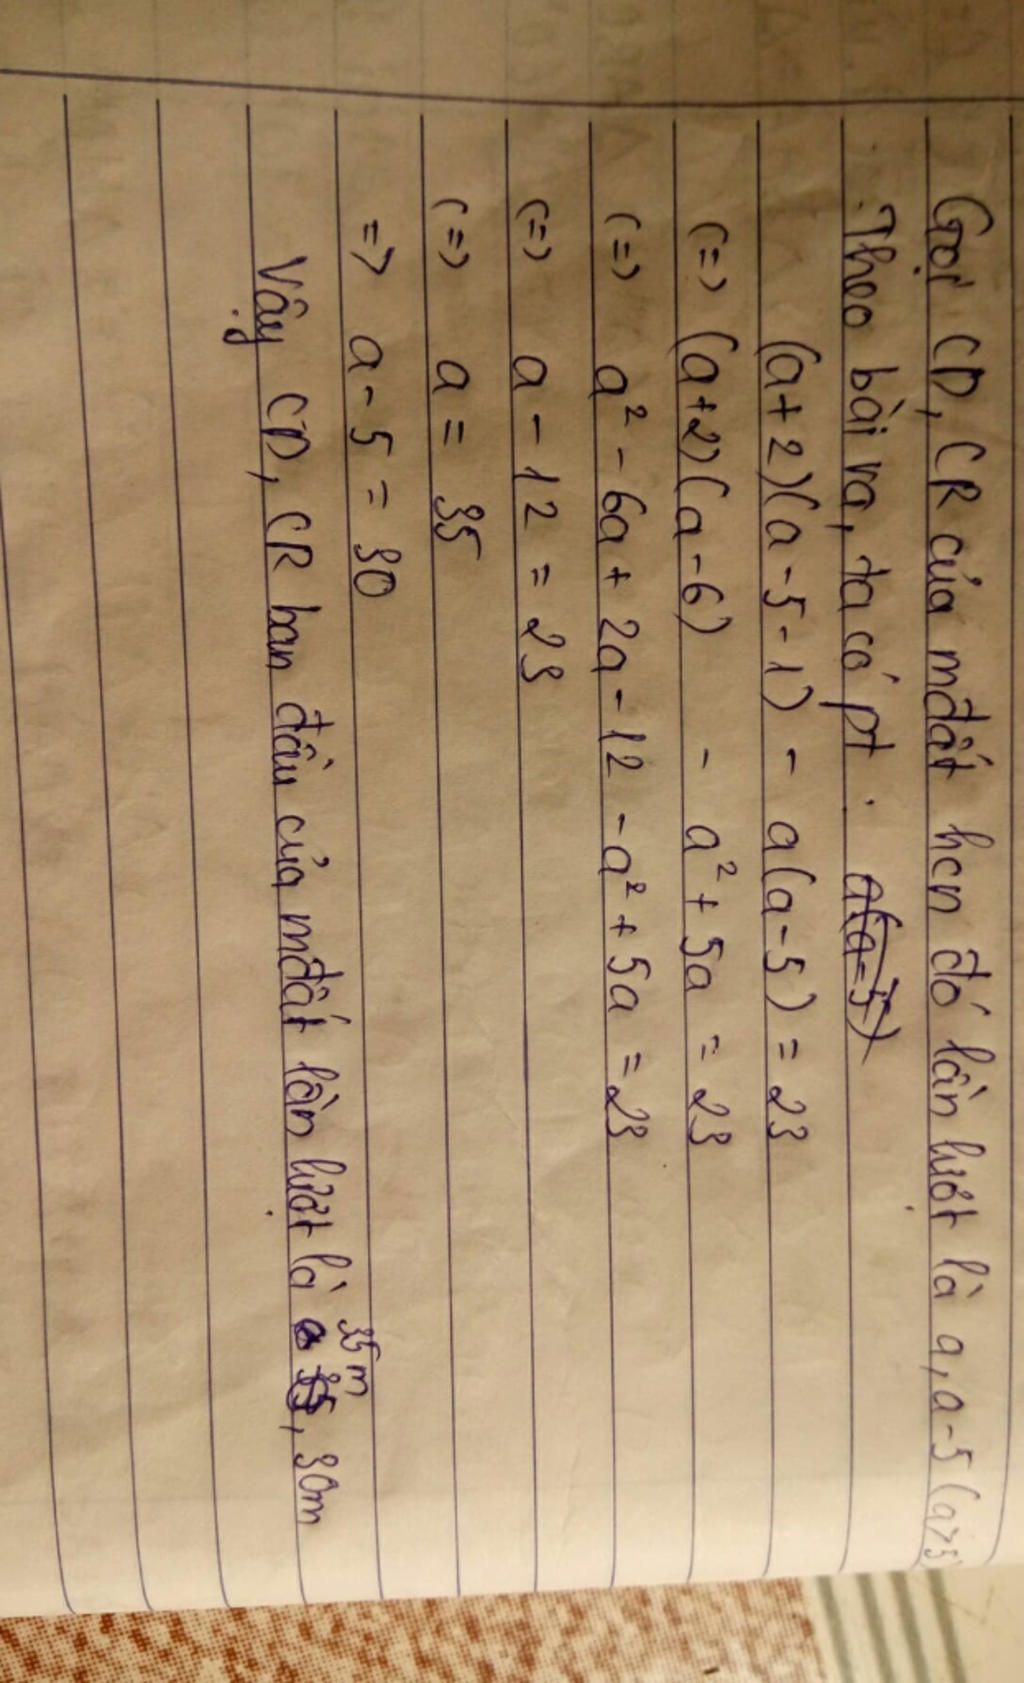 Gọi CD, CR của mđất hcn đó lần lượt là a, a-5 (a>5)
Theo bài ra, ta có pt.
(a+2)(a-5-1) - a(a-5) = 23
(=> (a+2)(a-6) - a² + 5a = 23
(=> a² - 6a + 2a - 12 - a² + 5a = 23
(=> a - 12 = 23
(=> a = 35
=> a - 5 = 30
Vậy CD, CR ban đầu của mđất lần lượt là 35m, 30m